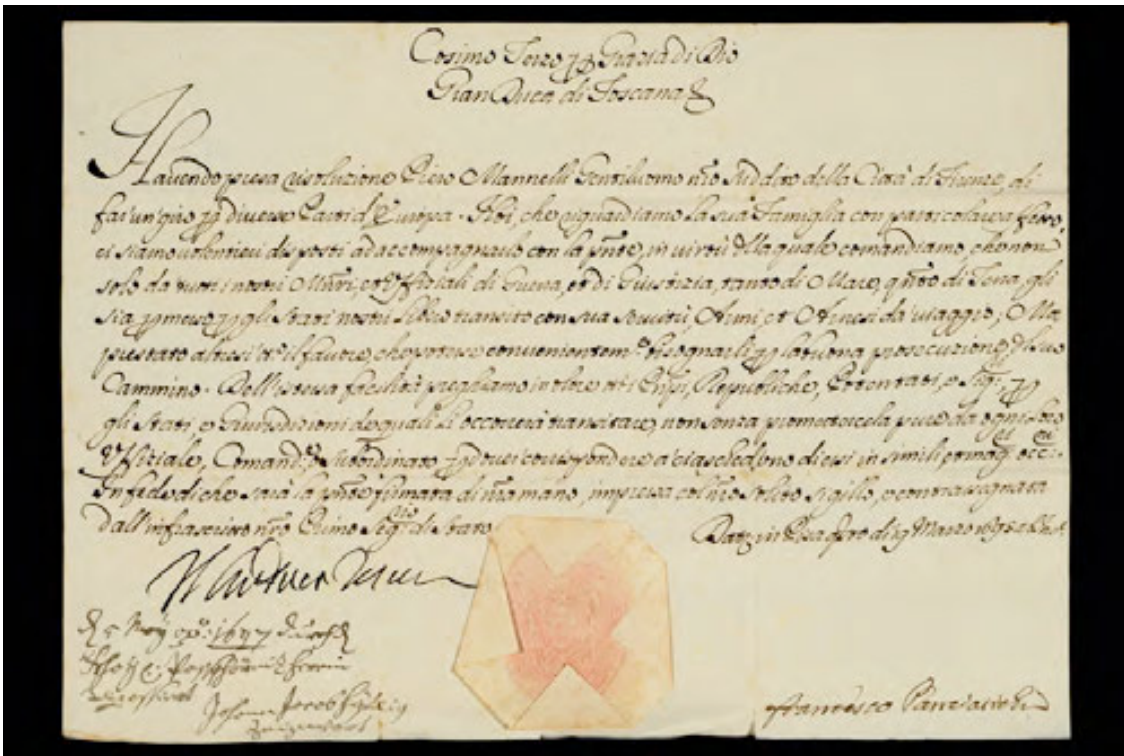 Cosimo Terzo p Grazia di Dio
Gran Duca di Toscana &
Havendo presa risoluzione Piero Mannelli Gentiluomo nro suddito della Città di Firenze, di
far'un'giro p diverse Parti d'Europa. Noi, che riguardiamo la sua Famiglia con particolare
ci siamo volentieri disposti ad accompagnarlo con la pnte, in virtù della quale comandiamo, che non
solo da tutti i nostri Mnri, et Vffiziali di Guerra, et di Giustizia, tanto di Mare, qnto di Terra, gli
sia pmesso p gli Stati nostri libero transito con sua servitù, Armi, et Arnesi da viaggio; Ma
prestato altresì il favore, che potesse convenientemte bisognarli p la buona prosecuzione del suo
Cammino. Dell'istessa facilità preghiamo inoltre Prnpi, Republiche, Potentati, e Sigri p
gli Stati, e Giurisdizioni de quali li occorrerà transitare, non senza promettercela pure da ogni loro
Vffiziale, Comandte, o Subordinato p dover corrispondere a ciascheduno di essi in simili, et maggri occni
In fede di che sarà la pnte firmata di nra mano, impressa col nro solito sigillo, e contrasegnata
dall'infrascritto nro Primo Segrio di Stato. Data in Pisa questo di 19 Marzo
1697
Johann Jacob
Francesco Panciatichi